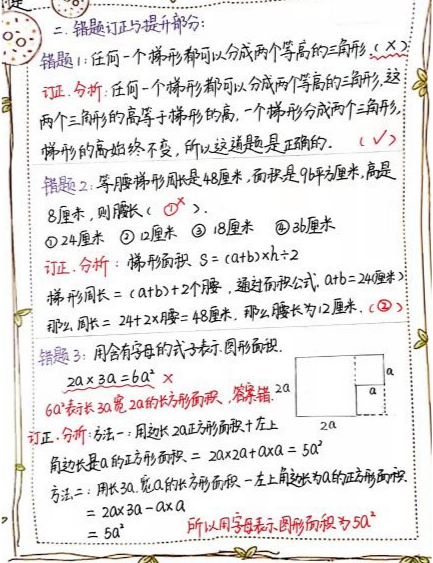 二、错题订正与提升部分:
错题1:任何一个梯形都可以分成两个等高的三角形.(×)
订正.分析:任何一个梯形都可以分成两个等高的三角形.这
两个三角形的高等于梯形的高,一个梯形分成两个三角形,
梯形的高始终不变,所以这道题是正确的. (✓)
错题2:等腰梯形周长是48厘米,面积是96平方厘米,高是
8厘米,则腰长( ①× ).
①24厘米 ②12厘米 ③18厘米 ④36厘米
订正.分析:梯形面积 S=(a+b)×h÷2
梯形周长=(a+b)+2个腰,通过面积公式,a+b=24(厘米)
那么周长=24+2×腰=48厘米.那么腰长为12厘米.(②)
错题3:用含有字母的式子表示图形面积.
2a×3a=6a² ×
6a²表示长3a宽2a的长方形面积,答案错.
2a
a
a
2a
订正.分析:方法一:用边长2a正方形面积+左上
角边长是a的正方形面积=2a×2a+a×a=5a²
方法二:用长3a.宽a的长方形面积-左上角边长为a的正方形面积
=2a×3a-a×a
=5a²
所以用字母表示图形面积为5a²